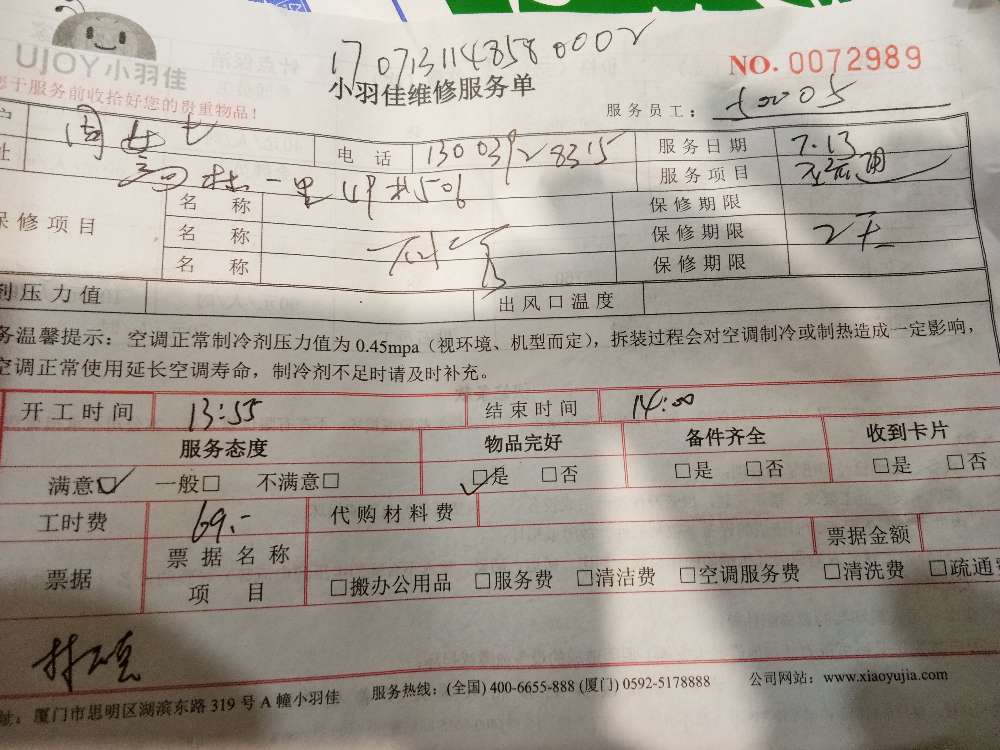 UJOY小羽佳
17071311485800002
小羽佳维修服务单
NO. 0072989
您于服务前收拾好您的贵重物品!
服务员工:
户 周女士 电 话 13003928315 服务日期 7.13
址 服务项目
保修项目 名 称 保修期限
名 称 保修期限 2天
名 称 保修期限
剂压力值 出风口温度
务温馨提示:空调正常制冷剂压力值为 0.45mpa(视环境、机型而定),拆装过程会对空调制冷或制热造成一定影响,
空调正常使用延长空调寿命,制冷剂不足时请及时补充。
开工时间 13:55 结束时间 14:00
服务态度 物品完好 备件齐全 收到卡片
满意☑ 一般□ 不满意□ ☑是 □否 □是 □否 □是 □否
工时费 69.- 代购材料费
票据 票据名称 票据金额
项 目 □搬办公用品 □服务费 □清洁费 □空调服务费 □清洗费 □疏通费
址:厦门市思明区湖滨东路 319 号 A 幢小羽佳 服务热线:(全国) 400-6655-888 (厦门) 0592-5178888 公司网站:www.xiaoyujia.com